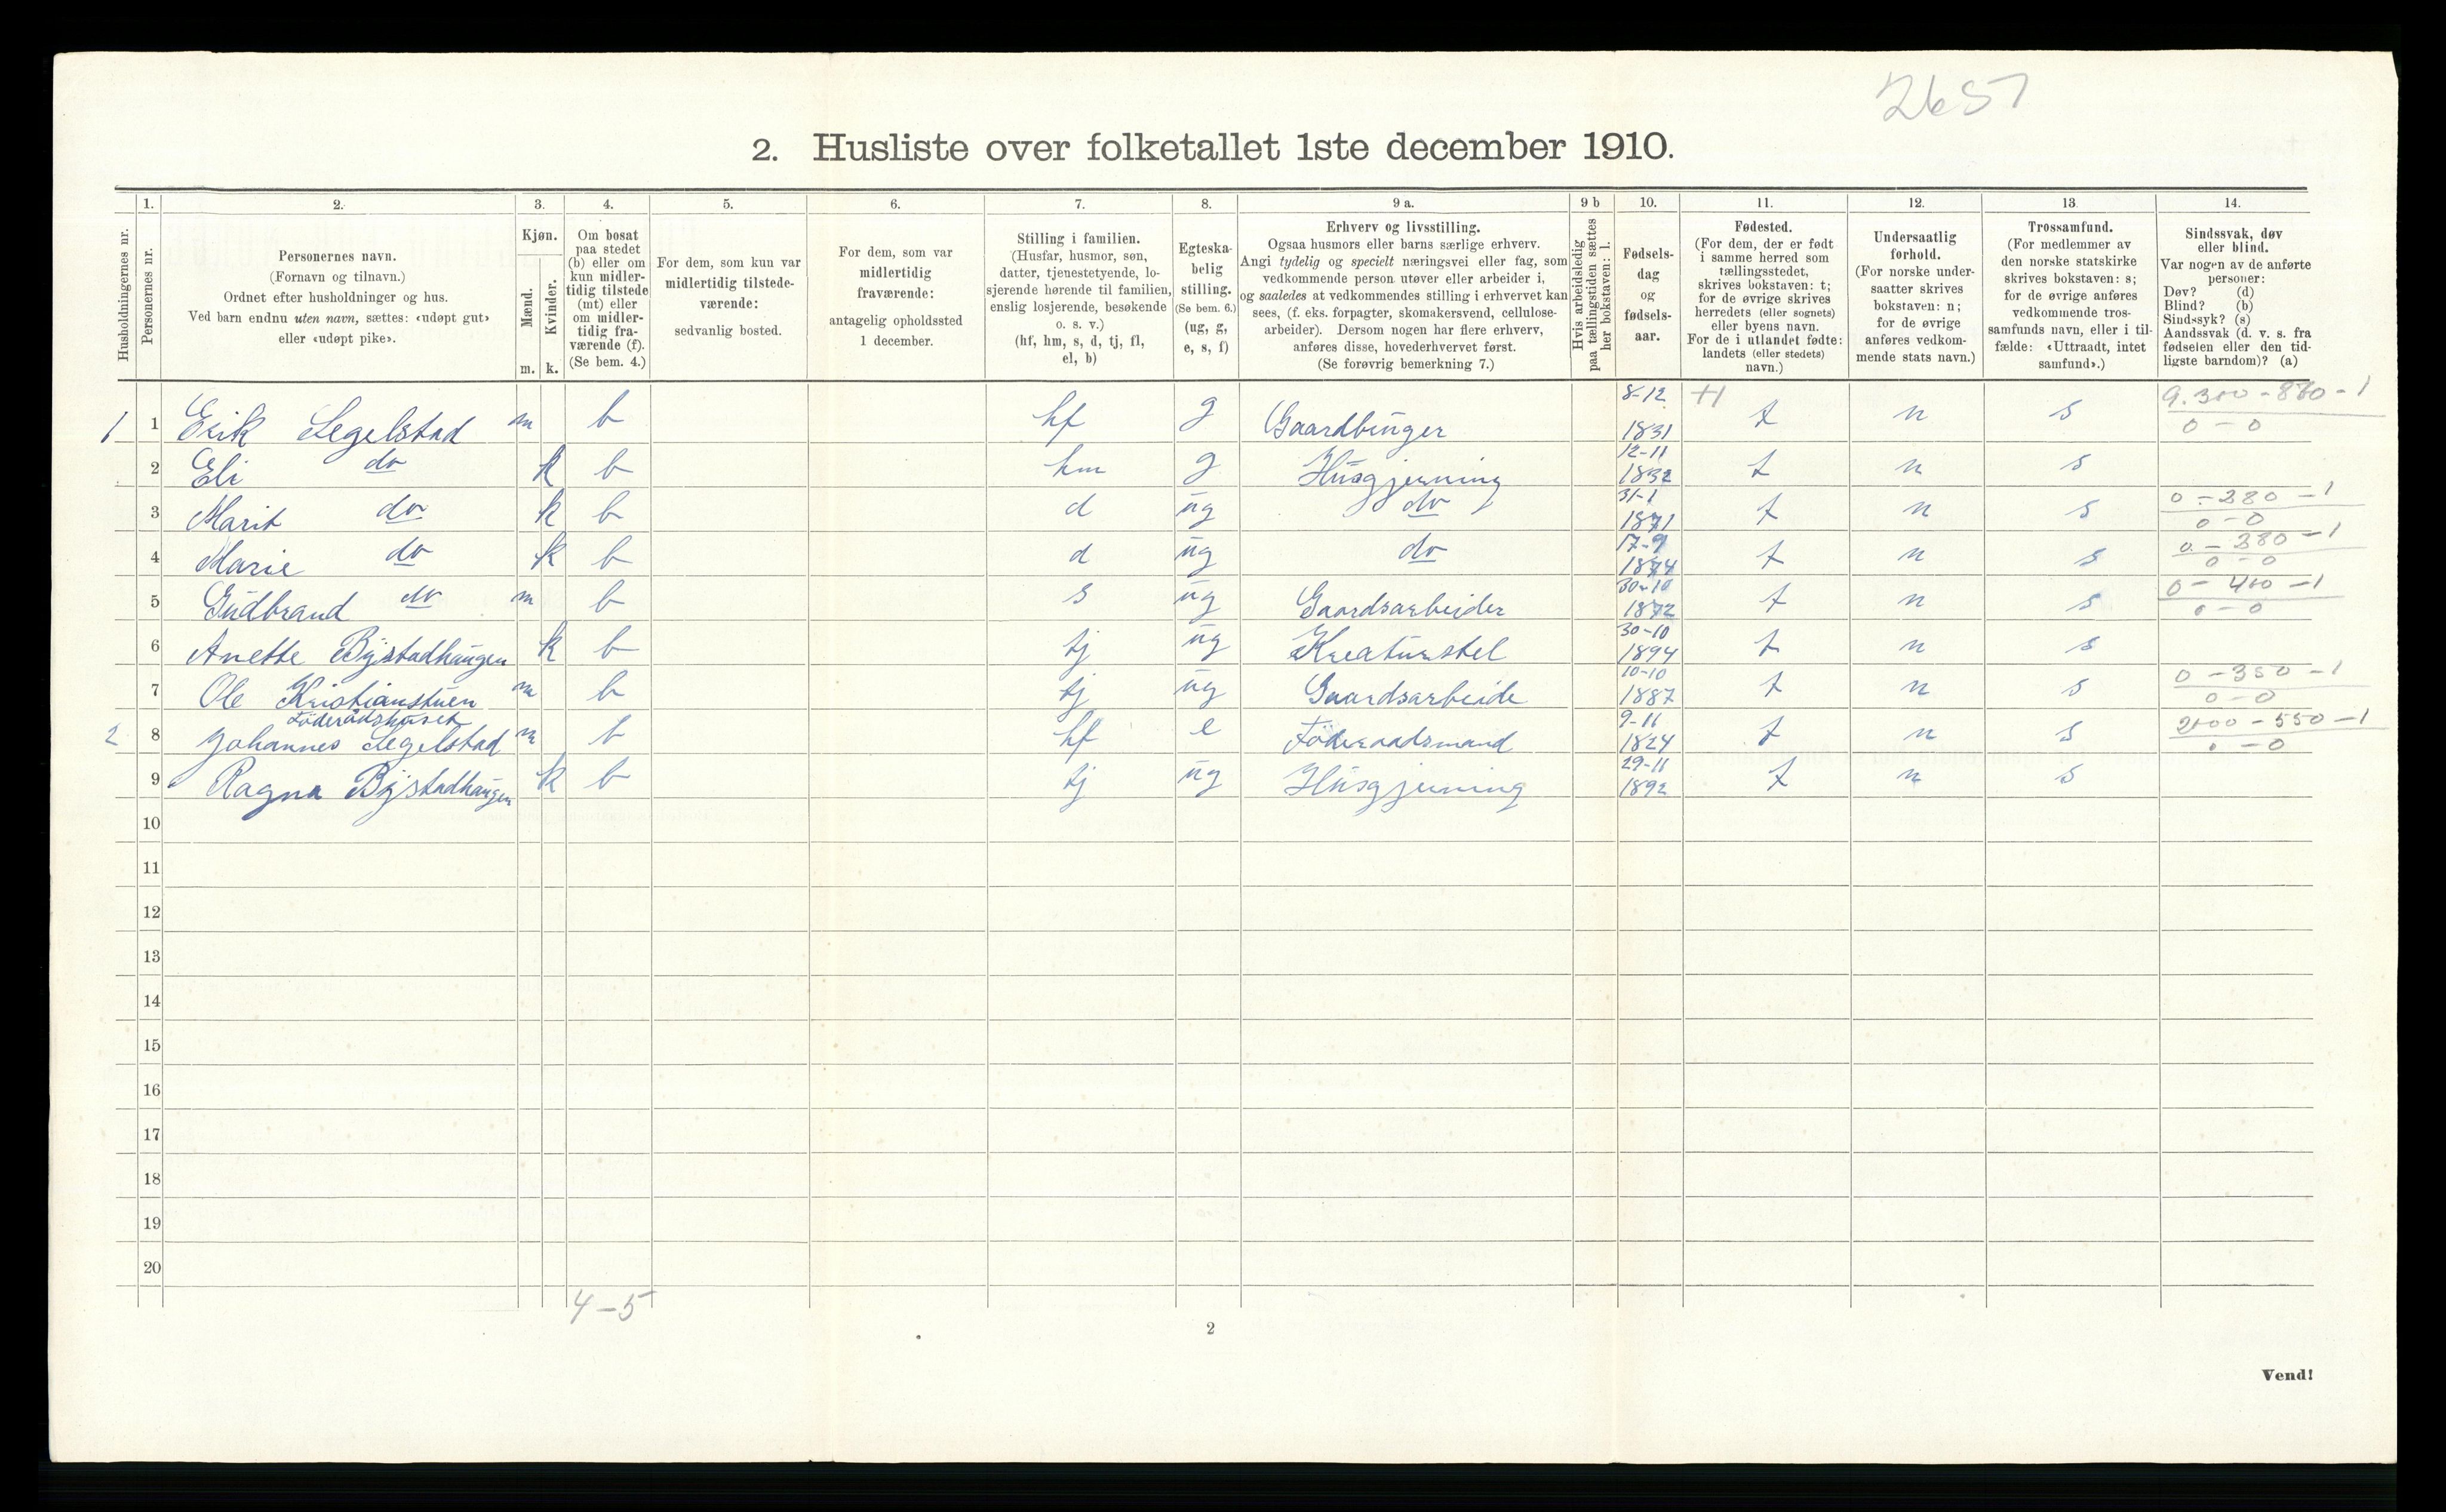 2657
2. Husliste over folketallet 1ste december 1910.
1. 2. 3. 4. 5. 6. 7. 8. 9 a. 9 b 10. 11. 12. 13 14.
Husholdningernes nr.
Personernes nr.
Personernes navn.
(Fornavn og tilnavn.)
Ordnet efter husholdninger og hus.
Ved barn endnu uten navn, sættes: «udøpt gut»
eller «udøpt pike».
Kjøn.
Mænd.
Kvinder.
m. k.
Om bosat
paa stedet
(b) eller om
kun midler-
tidig tilstede
(mt) eller
om midler-
tidig fra-
værende (f).
(Se bem. 4.)
For dem, som kun var
midlertidig tilstede-
værende:
sedvanlig bosted.
For dem, som var
midlertidig
fraværende:
antagelig opholdssted
1 december.
Stilling i familien.
(Husfar, husmor, søn,
datter, tjenestetyende, lo-
sjerende hørende til familien,
enslig losjerende, besøkende
o. s. v.)
(hf, hm, s, d, tj, fl,
el, b)
Egteska-
belig
stilling.
(Se bem. 6.)
(ug, g,
e, s, f)
Erhverv og livsstilling.
Ogsaa husmors eller barns særlige erhverv.
Angi tydelig og specielt næringsvei eller fag, som
vedkommende person utøver eller arbeider i,
og saaledes at vedkommendes stilling i erhvervet kan
sees, (f. eks. forpagter, skomakersvend, cellulose-
arbeider). Dersom nogen har flere erhverv,
anføres disse, hovederhvervet først.
(Se forøvrig bemerkning 7.)
Hvis arbeidsledig
paa tællingstiden sættes
her bokstaven: l.
Fødsels-
dag
og
fødsels-
aar.
Fødested.
(For dem, der er født
i samme herred som
tællingsstedet,
skrives bokstaven: t;
for de øvrige skrives
herredets (eller sognets)
eller byens navn.
For de i utlandet fødte:
landets (eller stedets)
navn.)
Undersaatlig
forhold.
(For norske under-
saatter skrives
bokstaven: n;
for de øvrige
anføres vedkom-
mende stats navn.)
Trossamfund.
(For medlemmer av
den norske statskirke
skrives bokstaven: s;
for de øvrige anføres
vedkommende tros-
samfunds navn, eller i til-
fælde: «Uttraadt, intet
samfund».)
Sindssvak, døv
eller blind.
Var nogen av de anførte
personer:
Døv? (d)
Blind? (b)
Sindssyk? (s)
Aandssvak (d. v. s. fra
fødselen eller den tid-
ligste barndom)? (a)
1 1 Erik Segelstad m b hf g Gaardbruger 8-12 1831 t n s 9.300 - 870 - 1 0 - 0
2 Eli do k b hm g Husgjerning 12-11 1832 t n s
3 Marit do k b d ug do 31-1 1871 t n s 0 - 280 - 1 0 - 0
4 Marie do k b d ug do 17-9 1874 t n s 0 - 380 - 1 0 - 0
5 Gudbrand do m b s ug Gaardsarbeider 30-10 1872 t n s 0 - 400 - 1 0 - 0
6 Anette Bystadhaugen k b tj ug Kreaturstel 30-10 1894 t n s
7 Ole Kristianstuen m b tj ug Gaardsarbeide 10-10 1887 t n s 0 - 350 - 1 0 - 0
Föderådshuset
2 8 Johannes Segelstad m b hf e Föderaadsmand 9-11 1824 t n s 2100 - 550 - 1 0 - 0
9 Ragna Bystadhaugen k b tj ug Husgjerning 29-11 1892 t n s
10
11
12
13
14
15
16
17
18
19
20
4 - 5
2
Vend!